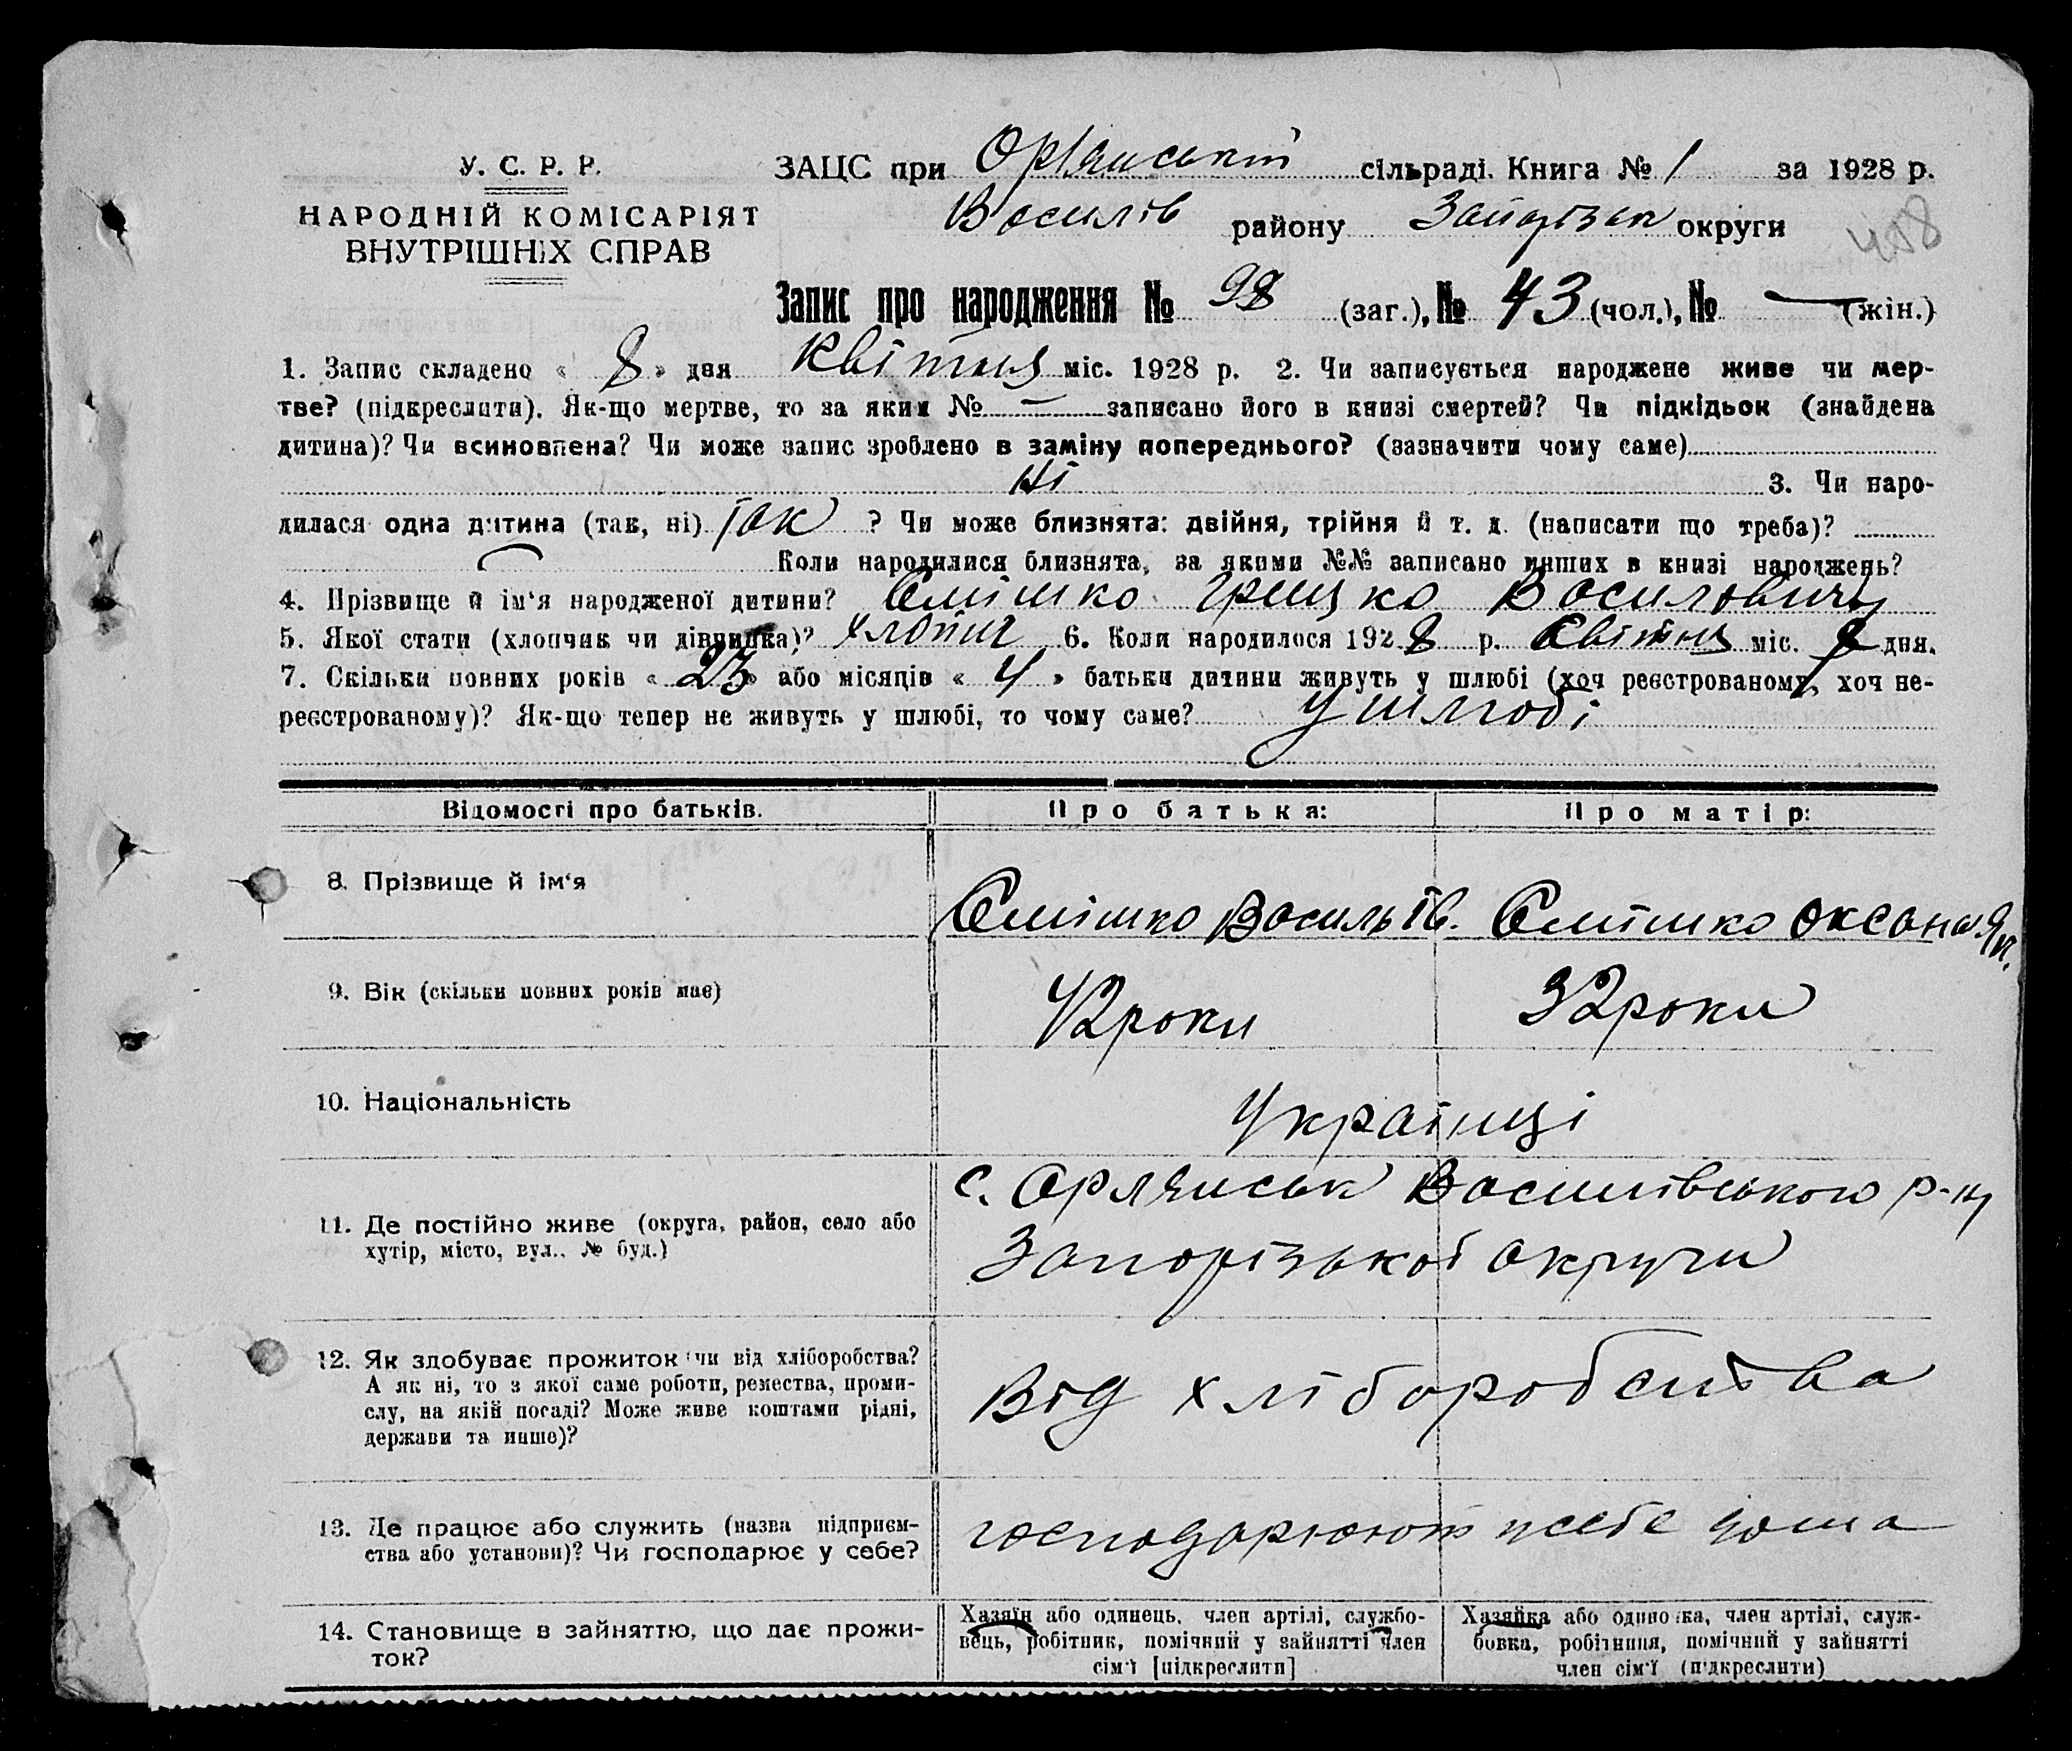 У. С. Р. Р.
НАРОДНІЙ КОМІСАРІЯТ
ВНУТРІШНІХ СПРАВ
ЗАЦС при Орлянській сільраді. Книга № 1 за 1928 р.
Василів району Запорізьк округи
458
Запис про народження № 98 (заг.), № 43 (чол.), № — (жін.)
1. Запис складено « 8 » дня Квітня міс. 1928 р. 2. Чи записується народжене живе чи мер-
тве? (підкреслити). Як-що мертве, то за яким № — записано його в книзі смертей? Чи підкідьок (знайдена
дитина)? Чи всиновлена? Чи може запис зроблено в заміну попереднього? (зазначити чому саме)
Ні 3. Чи наро-
дилася одна дитина (так, ні) Так ? Чи може близнята: двійня, трійня й т. д. (написати що треба)?
— Коли народилися близнята, за якими №№ записано инших в книзі народжень?
4. Прізвище й ім‘я народженої дитини? Смішко Грицько Василович
5. Якої стати (хлопчик чи дівчинка)? хлопич 6. Коли народилося 1928 р. Квітня міс. 8 дня.
7. Скільки повних років « 23 » або місяців « 4 » батьки дитини живуть у шлюбі (хоч реєстрованому, хоч не-
реєстрованому)? Як-що тепер не живуть у шлюбі, то чому саме? У шлюбі
Відомості про батьків. Про батька: Про матір:
8. Прізвище й ім‘я
Смішко Василь Ів. Смішко Оксана Як.
9. Вік (скільки повних років має)
42 роки 32 роки
10. Національність
Українці
11. Де постійно живе (округа, район, село або
хутір, місто, вул.. № буд.)
с. Орлянськ Василівського р-ну
Запорізької округи
12. Як здобуває прожиток: чи від хліборобства?
А як ні, то з якої саме роботи, ремества, проми-
слу, на якій посаді? Може живе коштами рідні,
держави та инше)?
Від хліборобства
13. Де працює або служить (назва підприєм-
ства або установи)? Чи господарює у себе?
господарюют у себе дома
14. Становище в зайняттю, що дає прожи-
ток?
Хазяїн або одинець, член артілі, службо-
вець, робітник, помічний у зайнятті член
сім‘ї [підкреслити]
Хазяйка або одиночка, член артілі, служ-
бовка, робітниця, помічний у зайнятті
член сім‘ї (підкреслити)